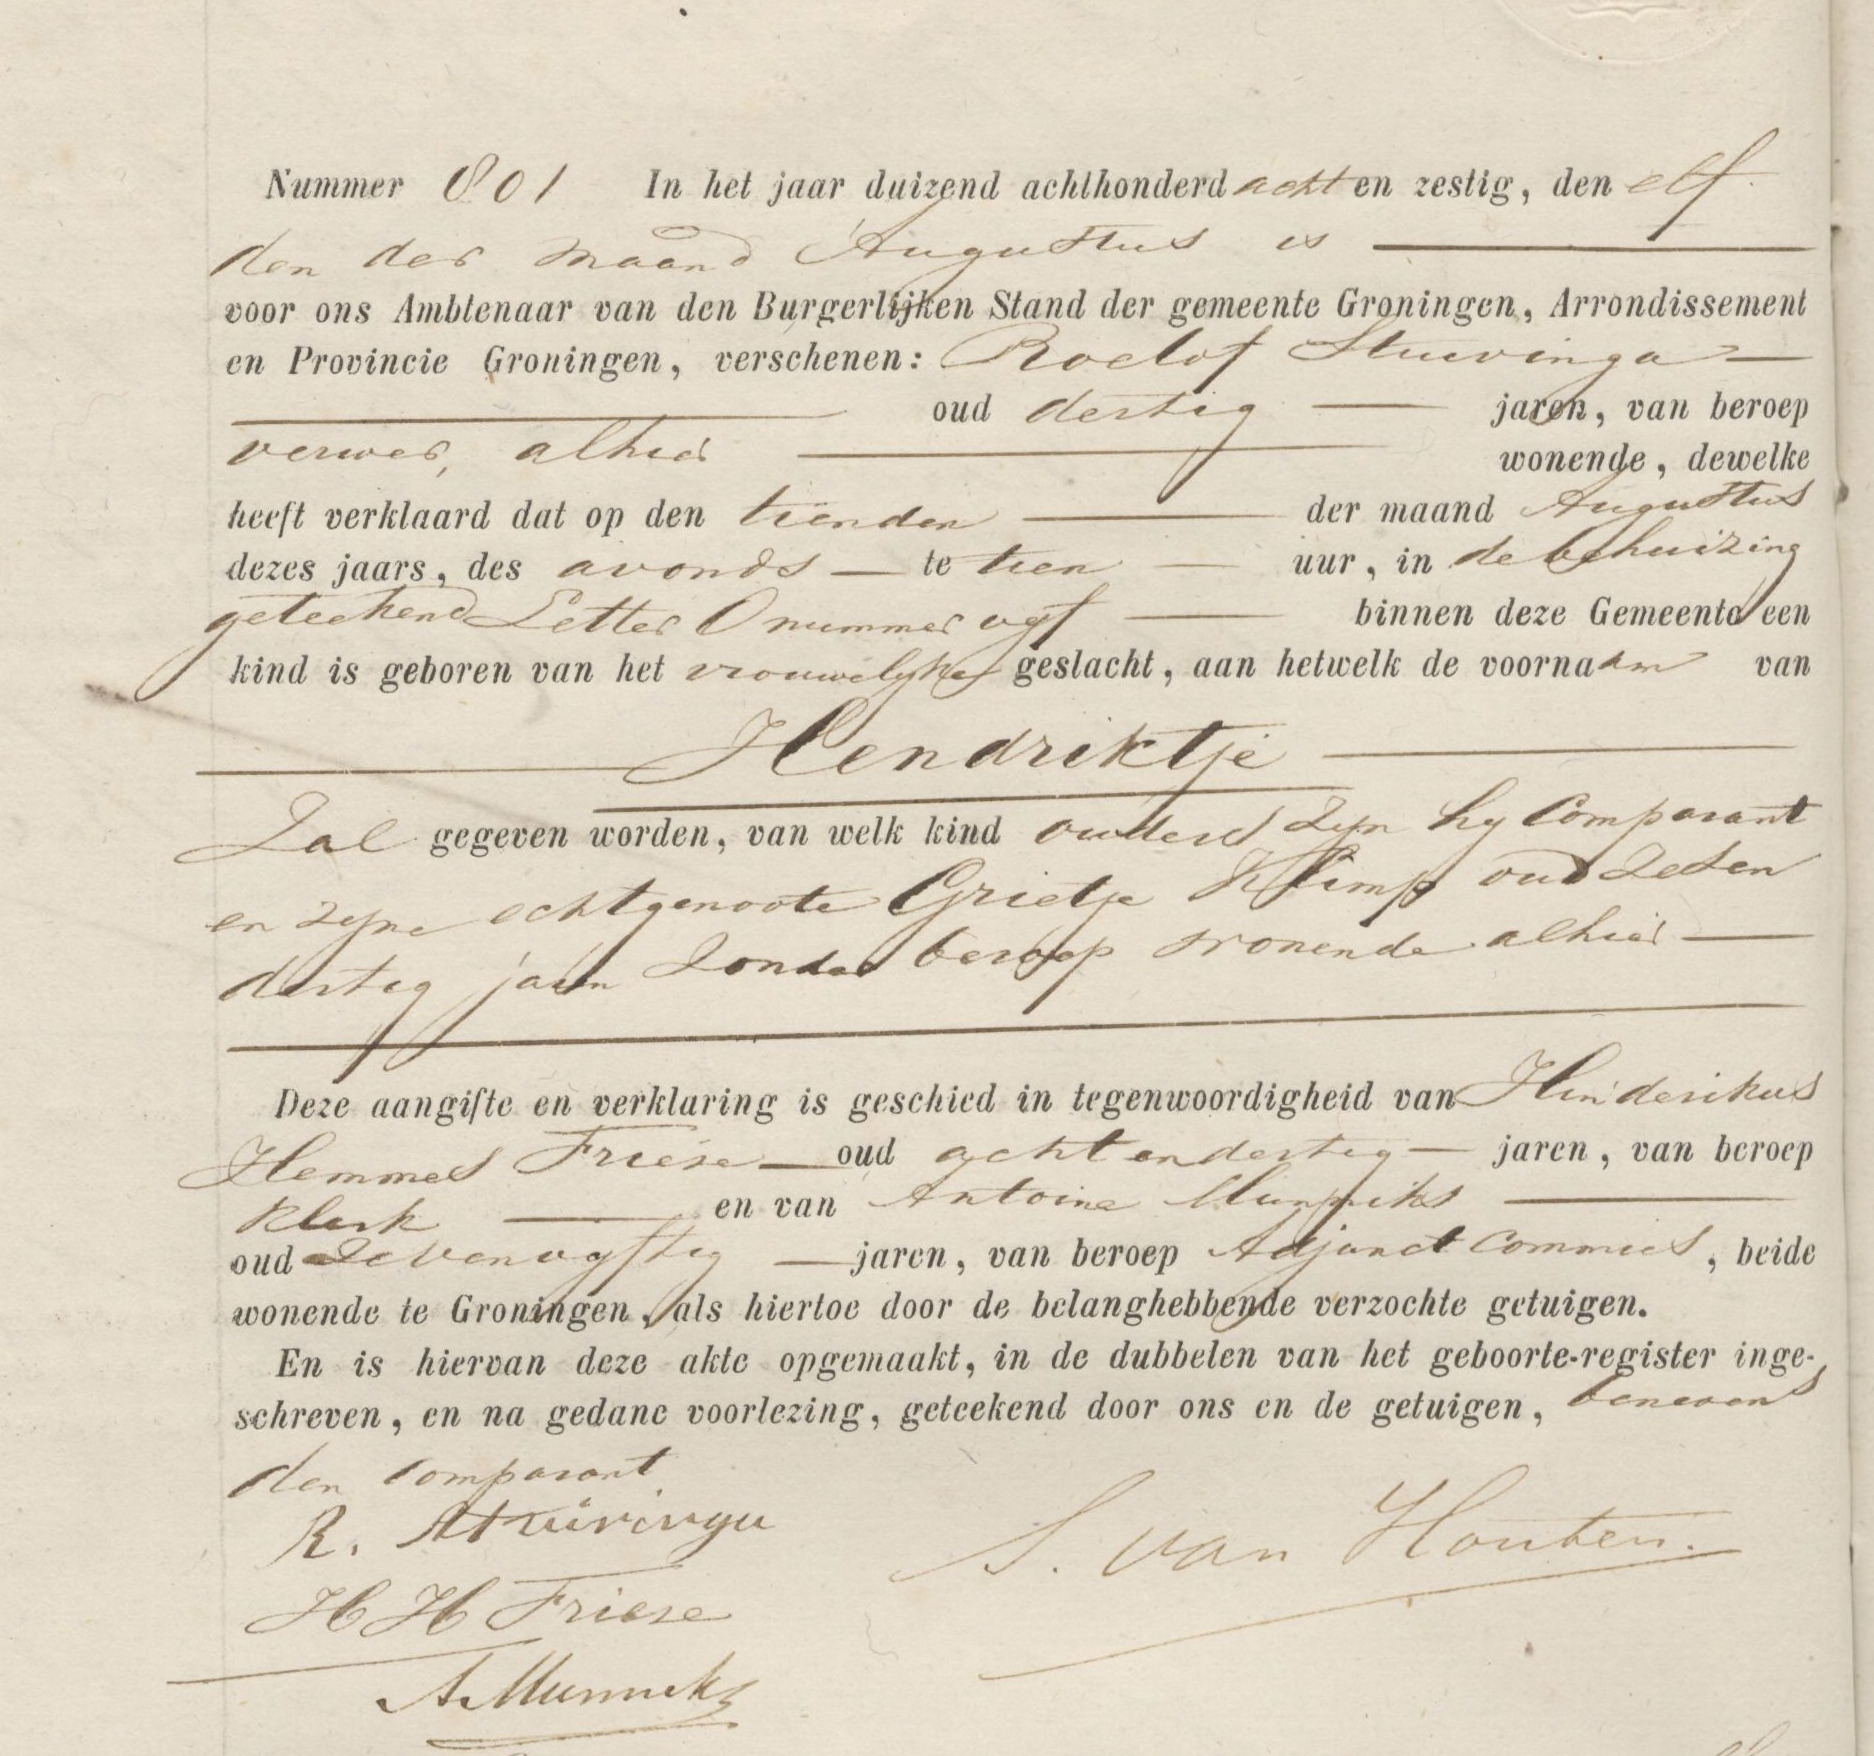 Nummer 801 In het jaar duizend achthonderd acht en zestig, den elf
den der maand Augustus is
voor ons Ambtenaar van den Burgerlijken Stand der gemeente Groningen, Arrondissement
en Provincie Groningen, verschenen: Roelof Stuivinga
oud dertig jaren, van beroep
verwer, alhier wonende, dewelke
heeft verklaard dat op den tienden der maand Augustus
dezes jaars, des avonds te tien uur, in de behuizing
geteekend Letter O nummer vyf binnen deze Gemeente een
kind is geboren van het vrouwelyke geslacht, aan hetwelk de voornaam van
Hendriktje
Zal gegeven worden, van welk kind ouders zyn hy Comparant
en zyne echtgenoote Grietje Klimp oud
dertig jaren Zonder beroep wonende alhier
Deze aangifte en verklaring is geschied in tegenwoordigheid van Hinderikus
Hemmes Friese oud acht en dertig jaren, van beroep
Klerk en van Antoine Munniks
oud Zevenvyftig jaren, van beroep Adjunct Commies, beide
wonende te Groningen, als hiertoe door de belanghebbende verzochte getuigen.
En is hiervan deze akte opgemaakt, in de dubbelen van het geboorte-register inge-
schreven, en na gedane voorlezing, geteekend door ons en de getuigen, benevens
den Comparant
R. Stuivinga
S. van Houten.
H H Friese
A. Munniks